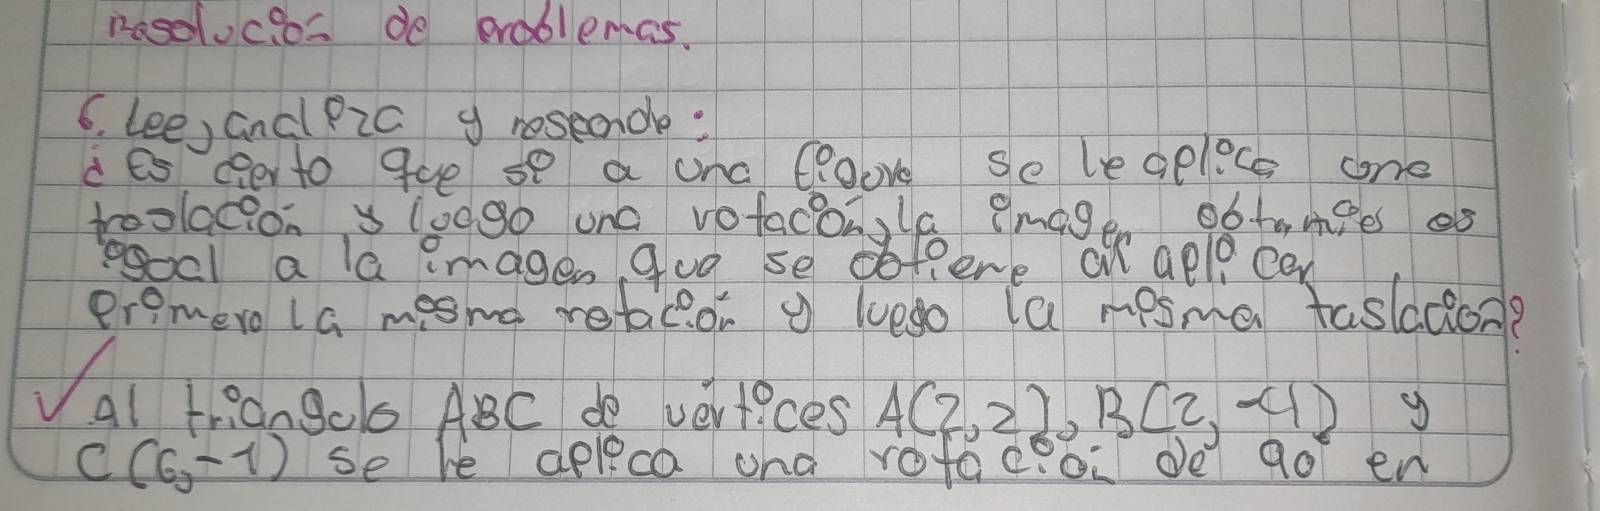 Resolución de problemas.
6. Lee, analiza y responde:
¿Es cierto que si a una figura se le aplica una
traslación y luego una rotación, la imagen obtenida es
igual a la imagen que se obtiene al aplicar
primero la misma rotación y luego la misma taslación?
✓ Al triángulo ABC de vértices A(2,2), B(2,-1) y
C(6,-1) se le aplica una rotación de 90° en